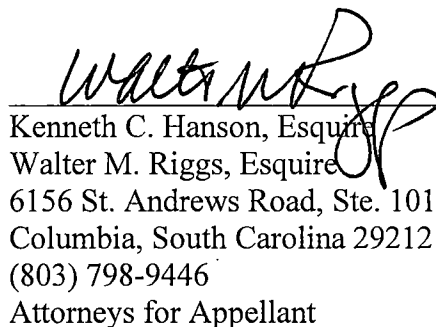 Walter M Riggs
Kenneth C. Hanson, Esquire
Walter M. Riggs, Esquire
6156 St. Andrews Road, Ste. 101
Columbia, South Carolina 29212
(803) 798-9446
Attorneys for Appellant